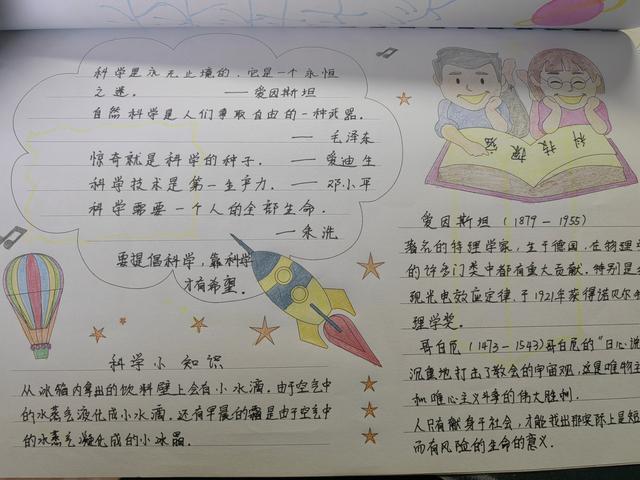 科学是永无止境的，它是一个永恒
之迷。 —— 爱因斯坦
自然科学是人们争取自由的一种武器。
—— 毛泽东
惊奇就是科学的种子。 —— 爱迪生
科学技术是第一生产力。 —— 邓小平
科学需要一个人的全部生命。
—— 朱洗
要提倡科学，靠科学
才有希望。
科学小知识
从冰箱内拿出的饮料壁上会有小水滴。由于空气中
的水蒸气液化成小水滴。还有早晨的霜是由于空气中
的水蒸气凝化成的小冰晶。
科技探秘
爱因斯坦（1879－1955）
著名的物理学家，生于德国，在物理
的许多门类中都有重大贡献。特别是
现光电效应定律、于1921年获得诺贝尔
理学奖。
哥白尼（1473－1543）哥白尼的"日心说
沉重地打击了教会的宇宙观，这是唯物
和唯心主义斗争的伟大胜利。
人只有献身于社会，才能找出那实际上是短
而有风险的生命的意义。